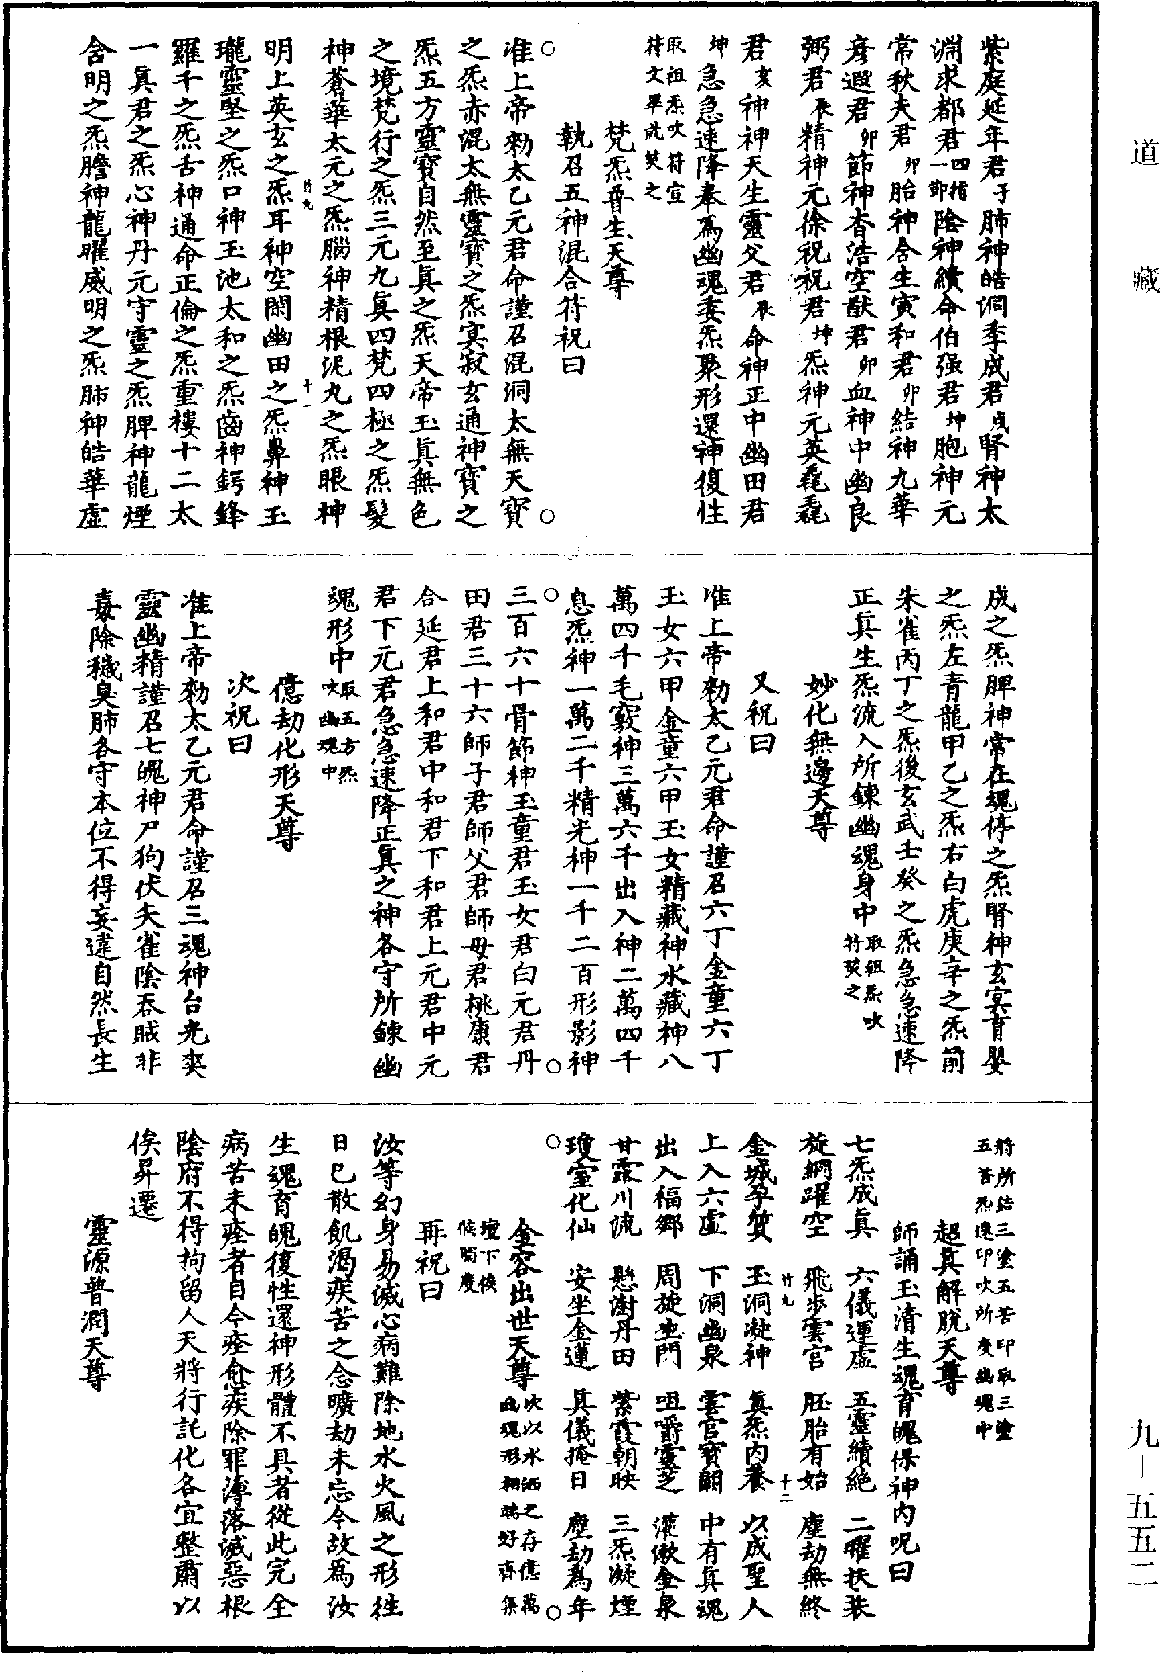 道藏
九—五五二
紫庭延年君子肺神皓洞季成君戌腎神太
淵求都君四指一節陰神續命伯强君坤胞神元
常秋夫君卯胎神含生寅和君卯結神九華
彦遐君卯節神杳浩空猷君卯血神中幽良
弼君辰精神元徐祝祝君坤炁神元英毳毳
君亥神神天生靈父君辰命神正中幽田君
坤急急速降奉爲幽魂委炁聚形還神復性
取祖炁吹符宣符文畢洗焚之
梵炁普生天尊
執召五神混合符祝曰
准上帝勑太乙元君命謹召混洞太無天寶
之炁赤混太無靈寶之炁寞寂玄通神寶之
炁五方靈寶自然至真之炁天帝玉真無色
之境梵行之炁三元九真四梵四極之炁髮
神蒼華太元之炁腦神精根泥丸之炁眼神
明上英玄之炁耳神空閑幽田之炁鼻神玉
瓏靈堅之炁口神玉池太和之炁齒神鍔鋒
羅千之炁舌神通命正倫之炁重樓十二太
一真君之炁心神丹元守靈之炁脾神龍煙
含明之炁膽神龍曜威明之炁肺神皓華虛
成之炁脾神常在魂停之炁腎神玄冥育嬰
之炁左青龍甲乙之炁右白虎庚辛之炁前
朱雀丙丁之炁後玄武壬癸之炁急急速降
正真生炁流入所鍊幽魂身中取祖炁吹符焚之
妙化無邊天尊
又祝曰
准上帝勑太乙元君命謹召六丁金童六丁
玉女六甲金童六甲玉女精藏神水藏神八
萬四千毛竅神三萬六千出入神二萬四千
息炁神一萬二千精光神一千二百形影神
三百六十骨節神玉童君玉女君白元君丹
田君三十六師子君師父君師母君桃康君
合延君上和君中和君下和君上元君中元
君下元君急急速降正真之神各守所鍊幽
魂形中取五方炁吹幽魂中
億劫化形天尊
次祝曰
准上帝勑太乙元君命謹召三魂神台光奕
靈幽精謹召七魄神尸狗伏夫雀陰吞賊非
毒除穢臭肺各守本位不得妄違自然長生
將所結三塗五苦印取三塗五苦炁遶印吹所度幽魂中
超真解脫天尊
師誦玉清生魂育魄保神内呪曰
七炁成真 六儀運虛 五靈續絶 二曜扶裝
旋綱躍空 飛步雲宮 胚胎有始 塵劫無終
金城孕質 玉洞凝神 真炁内養 以成聖人
上入六虛 下洞幽泉 雲宮寶闕 中有真魂
出入福鄉 周旋生門 咀嚼靈芝 灌漱金泉
甘露川流 懸澍丹田 紫霞朝映 三炁凝煙
瓊室化仙 安坐金蓮 具儀掩日 塵劫爲年
金容出世天尊吹以水洒之存億萬幽魂形相端好齊集壇下俟候蜀度
再祝曰
汝等幻身易滅心病難除地水火風之形往
日已散飢渴疾苦之念曠劫未忘今故爲汝
生魂育魄復性還神形體不具者從此完全
病苦未痊者自今痊愈疾除罪薄落滅惡根
陰府不得拘留人天將行託化各宜整肅以
俟昇遷
靈源普潤天尊